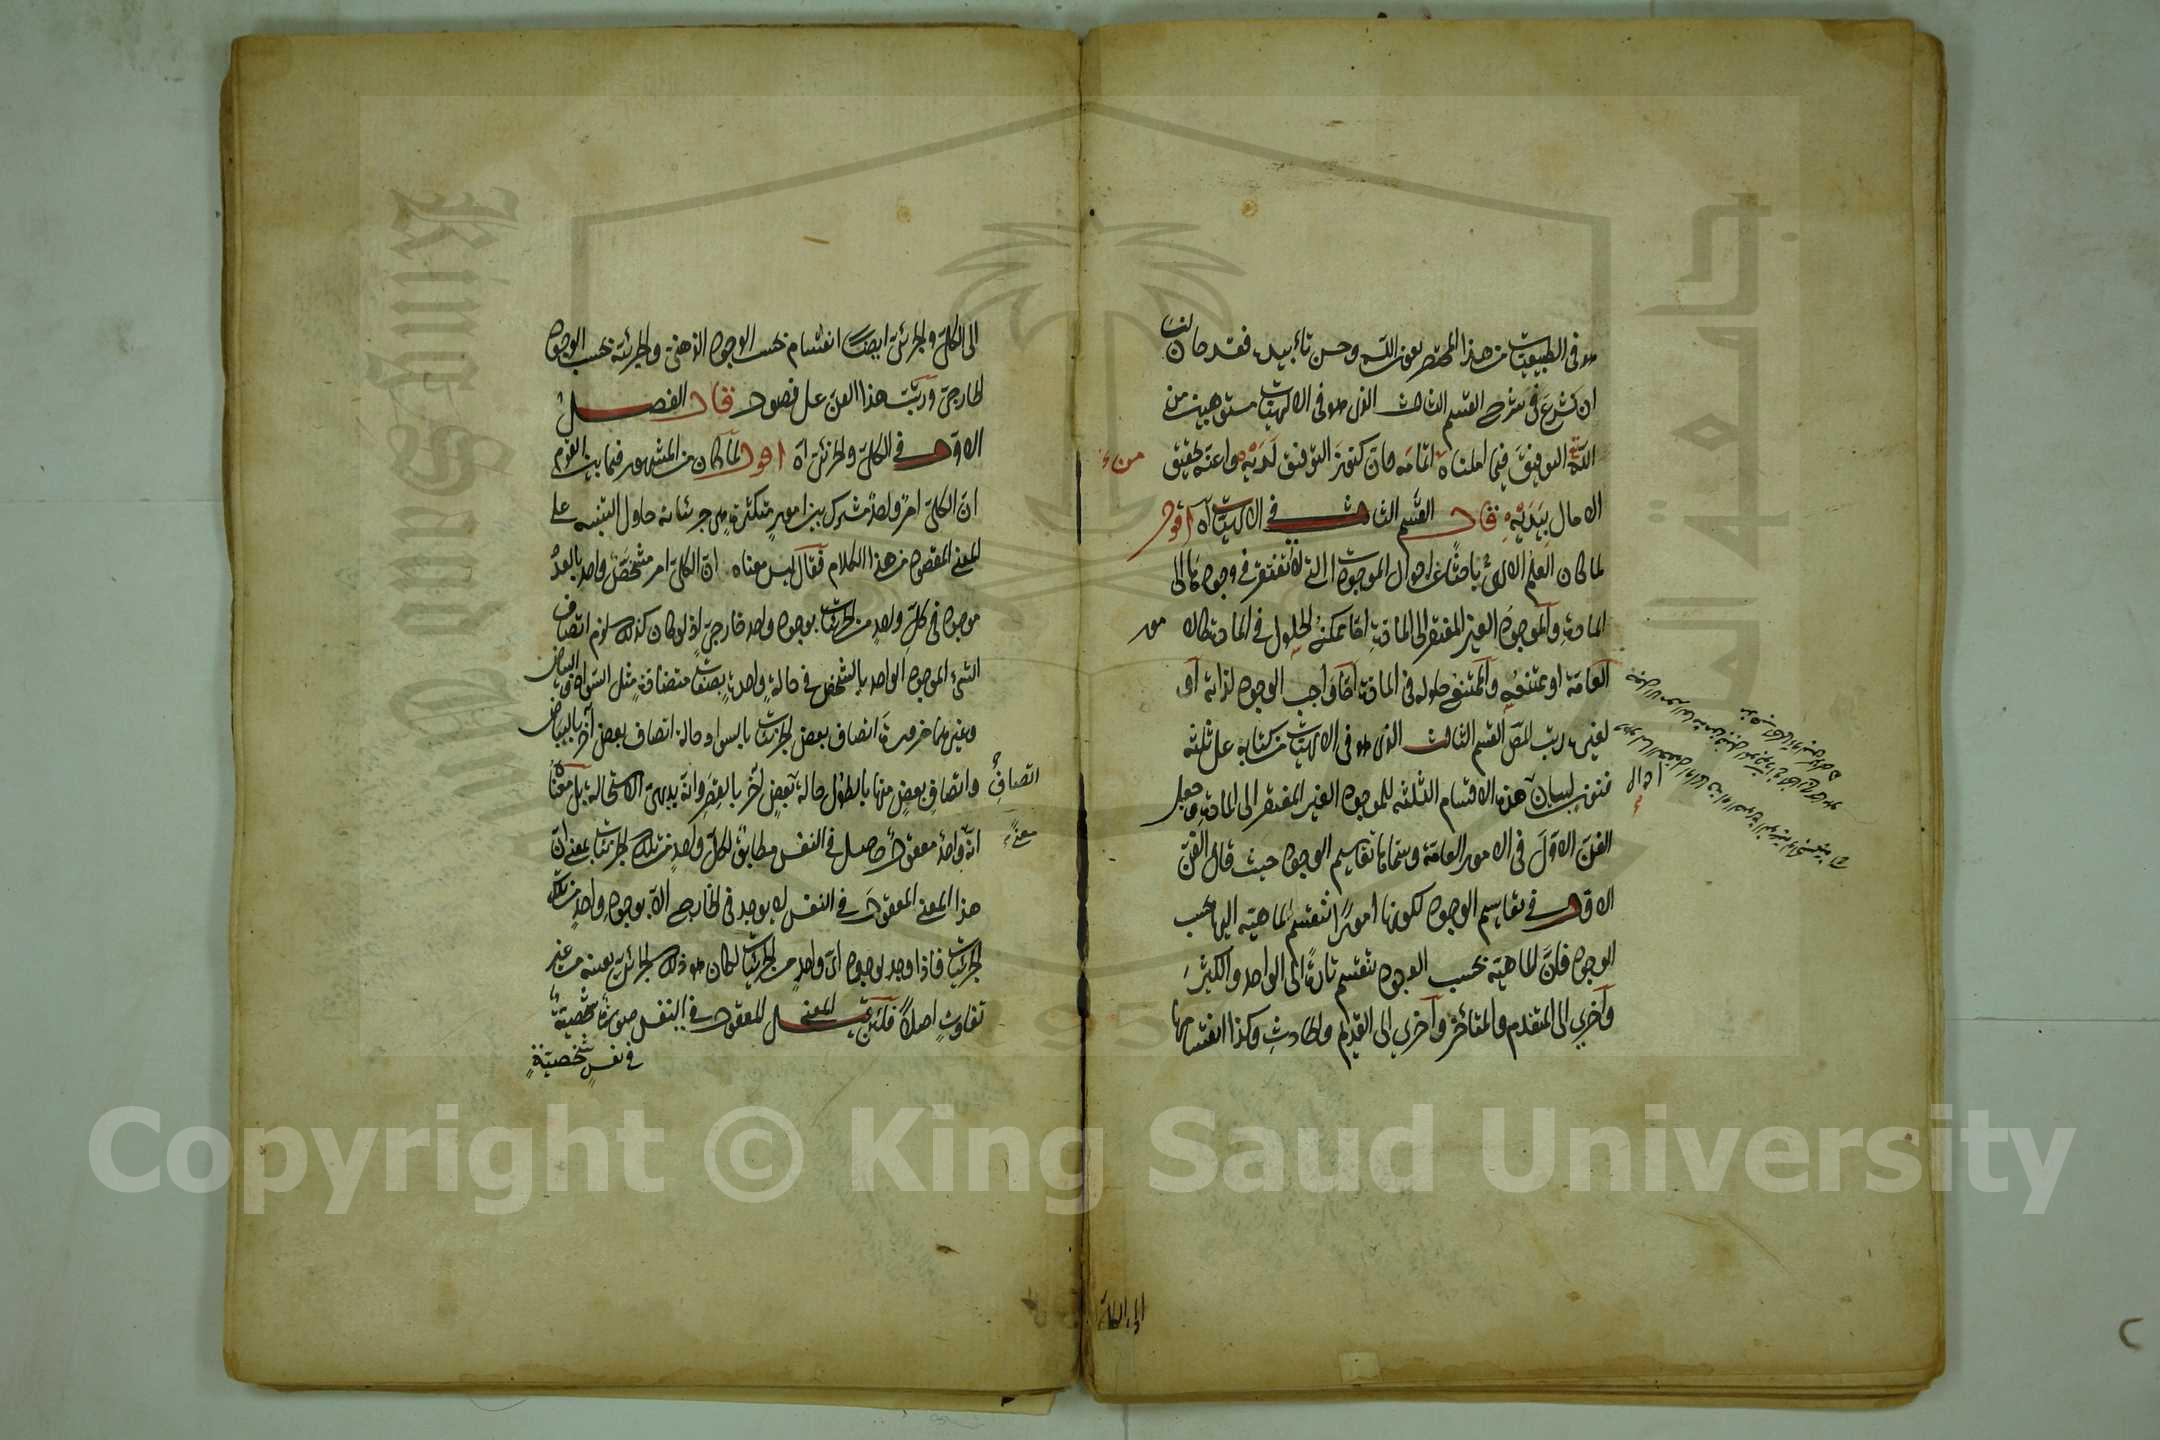 هو في الطبيعيات من هذا المختصر بعون الله وحسن تأييده فقد حان لنا
ان نشرع في شرح القسم الثالث الذي هو في الالهيات مستوهبين من
الله التوفيق فيما املناه اتمامه فان كنوز التوفيق لديه واعنة تحقيق
من
الامال بيديه قال القسم الثالث في الالهيات آه اقول
لما كان العلم الالهي باحثا عن احوال الموجودات التي لا تفتقر في وجودها الى
المادة والموجود الغير المفتقر الى المادة اما ممكن الحلول في المادة كالا
مور
العامة او ممتنعه والممتنع حلوله في المادة اما واجب الوجود لذاته او
لغيره رتب المص القسم الثالث الذي هو في الالهيات من كتابه على ثلثة
فنون لبيان هذه الاقسام الثلثة للموجود الغير المفتقر الى المادة وجعل
الفن الاول في الامور العامة وسماها تقاسيم الوجود حيث قال الفن
الاول في تقاسيم الوجود لكونها امورا تنقسم الماهية اليها بحسب
الوجود فان الماهية بحسب الوجود تنقسم تارة الى الواحد والكثير
واخرى الى المتقدم والمتأخر واخرى الى القديم والحادث وكذا انقسامها
الى الكلي والجزئي ايضا انقسام بحسب الوجود الذهني والجزئية بحسب الوجود
الخارجي ورتب هذا الفن على فصول قال الفصل
الاول في الكلي والجزئي آه اقول لما كان من المشهور فيما بين القوم
ان الكلي امر واحد مشترك بين امور متكثرة هي جزئياته حاول التنبيه على
المعنى المقصود من هذا الكلام فقال ليس معناه ان الكلي امر متشخص واحد بالعدد
موجود في كل واحد من الجزئيات بوجود واحد خارجي اذ لو كان كذلك لزم اتصاف
الشيء الموجود الواحد بالشخص في حالة واحدة بصفات متضادة مثل السواد والبياض
وغيرهما ضرورة اتصاف بعض الجزئيات بالسواد حالة اتصاف بعض آخر بالبياض
واتصاف بعض منها بالطول حالة بعض آخر بالقصر وانه بديهي الاستحالة بل معناه
اتصاف
انه واحد معقول حاصل في النفس مطابق لكل واحد من تلك الجزئيات بمعنى ان
معنى
هذا المعنى المعقول في النفس لو يوجد في الخارج الا بوجود واحد من تلك
الجزئيات فاذا وجد بوجود اي واحد من الجزئيات لكان هو ذلك الجزئي بعينه من غير
تفاوت اصلا فان قيل المعنى المعقول في النفس صورة شخصية
في نفس شخصية
Copyright © King Saud University